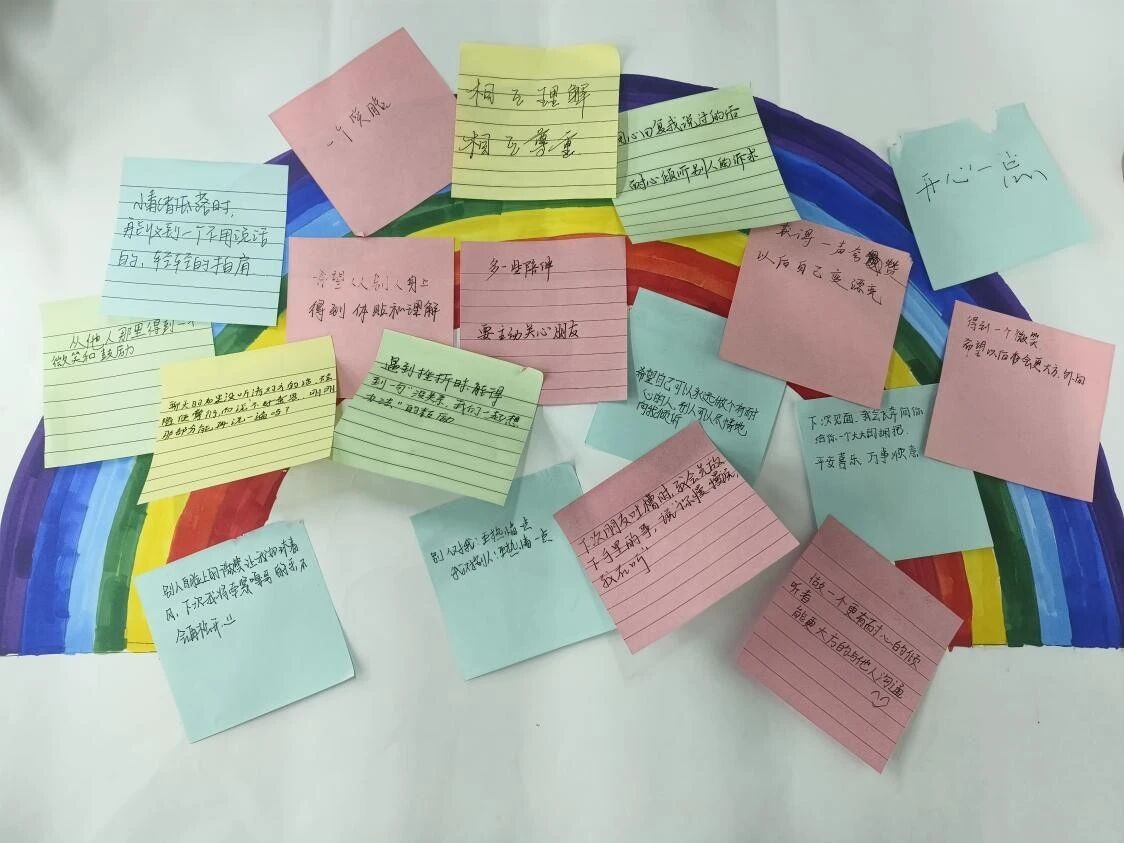 一个笑脸
相互理解
相互尊重
用心回复我说过的话
耐心倾听别人的诉求
开心一点
情绪低落时,
能收到一个不用说话
的,轻轻的拍肩
希望从别人身上
得到体贴和理解
多一些陪伴
要主动关心朋友
获得一声夸赞
以后自己变漂亮
得到一个微笑
希望以后都会更大方,外向
从他人那里得到一个
微笑和鼓励
聊天时如果没听清对方的话,
遇到挫折时能得
到一句“没关系,我们一起想
办法”的鼓励
希望自己可以永远做个有耐
心的人,别人可以尽情地
向我倾诉
下次见面,我会飞奔向你
给你一个大大的拥抱
平安喜乐 万事顺意
别人脸上的微笑让我如沐春
风,下次我将
别人对我:更热情一点
我对别人:更热情一点
下次朋友吐槽时,我会先放
下手里的事,说“你慢慢说,
我在听”
做一个更有耐心的倾
听者
能更大方的与他人沟通